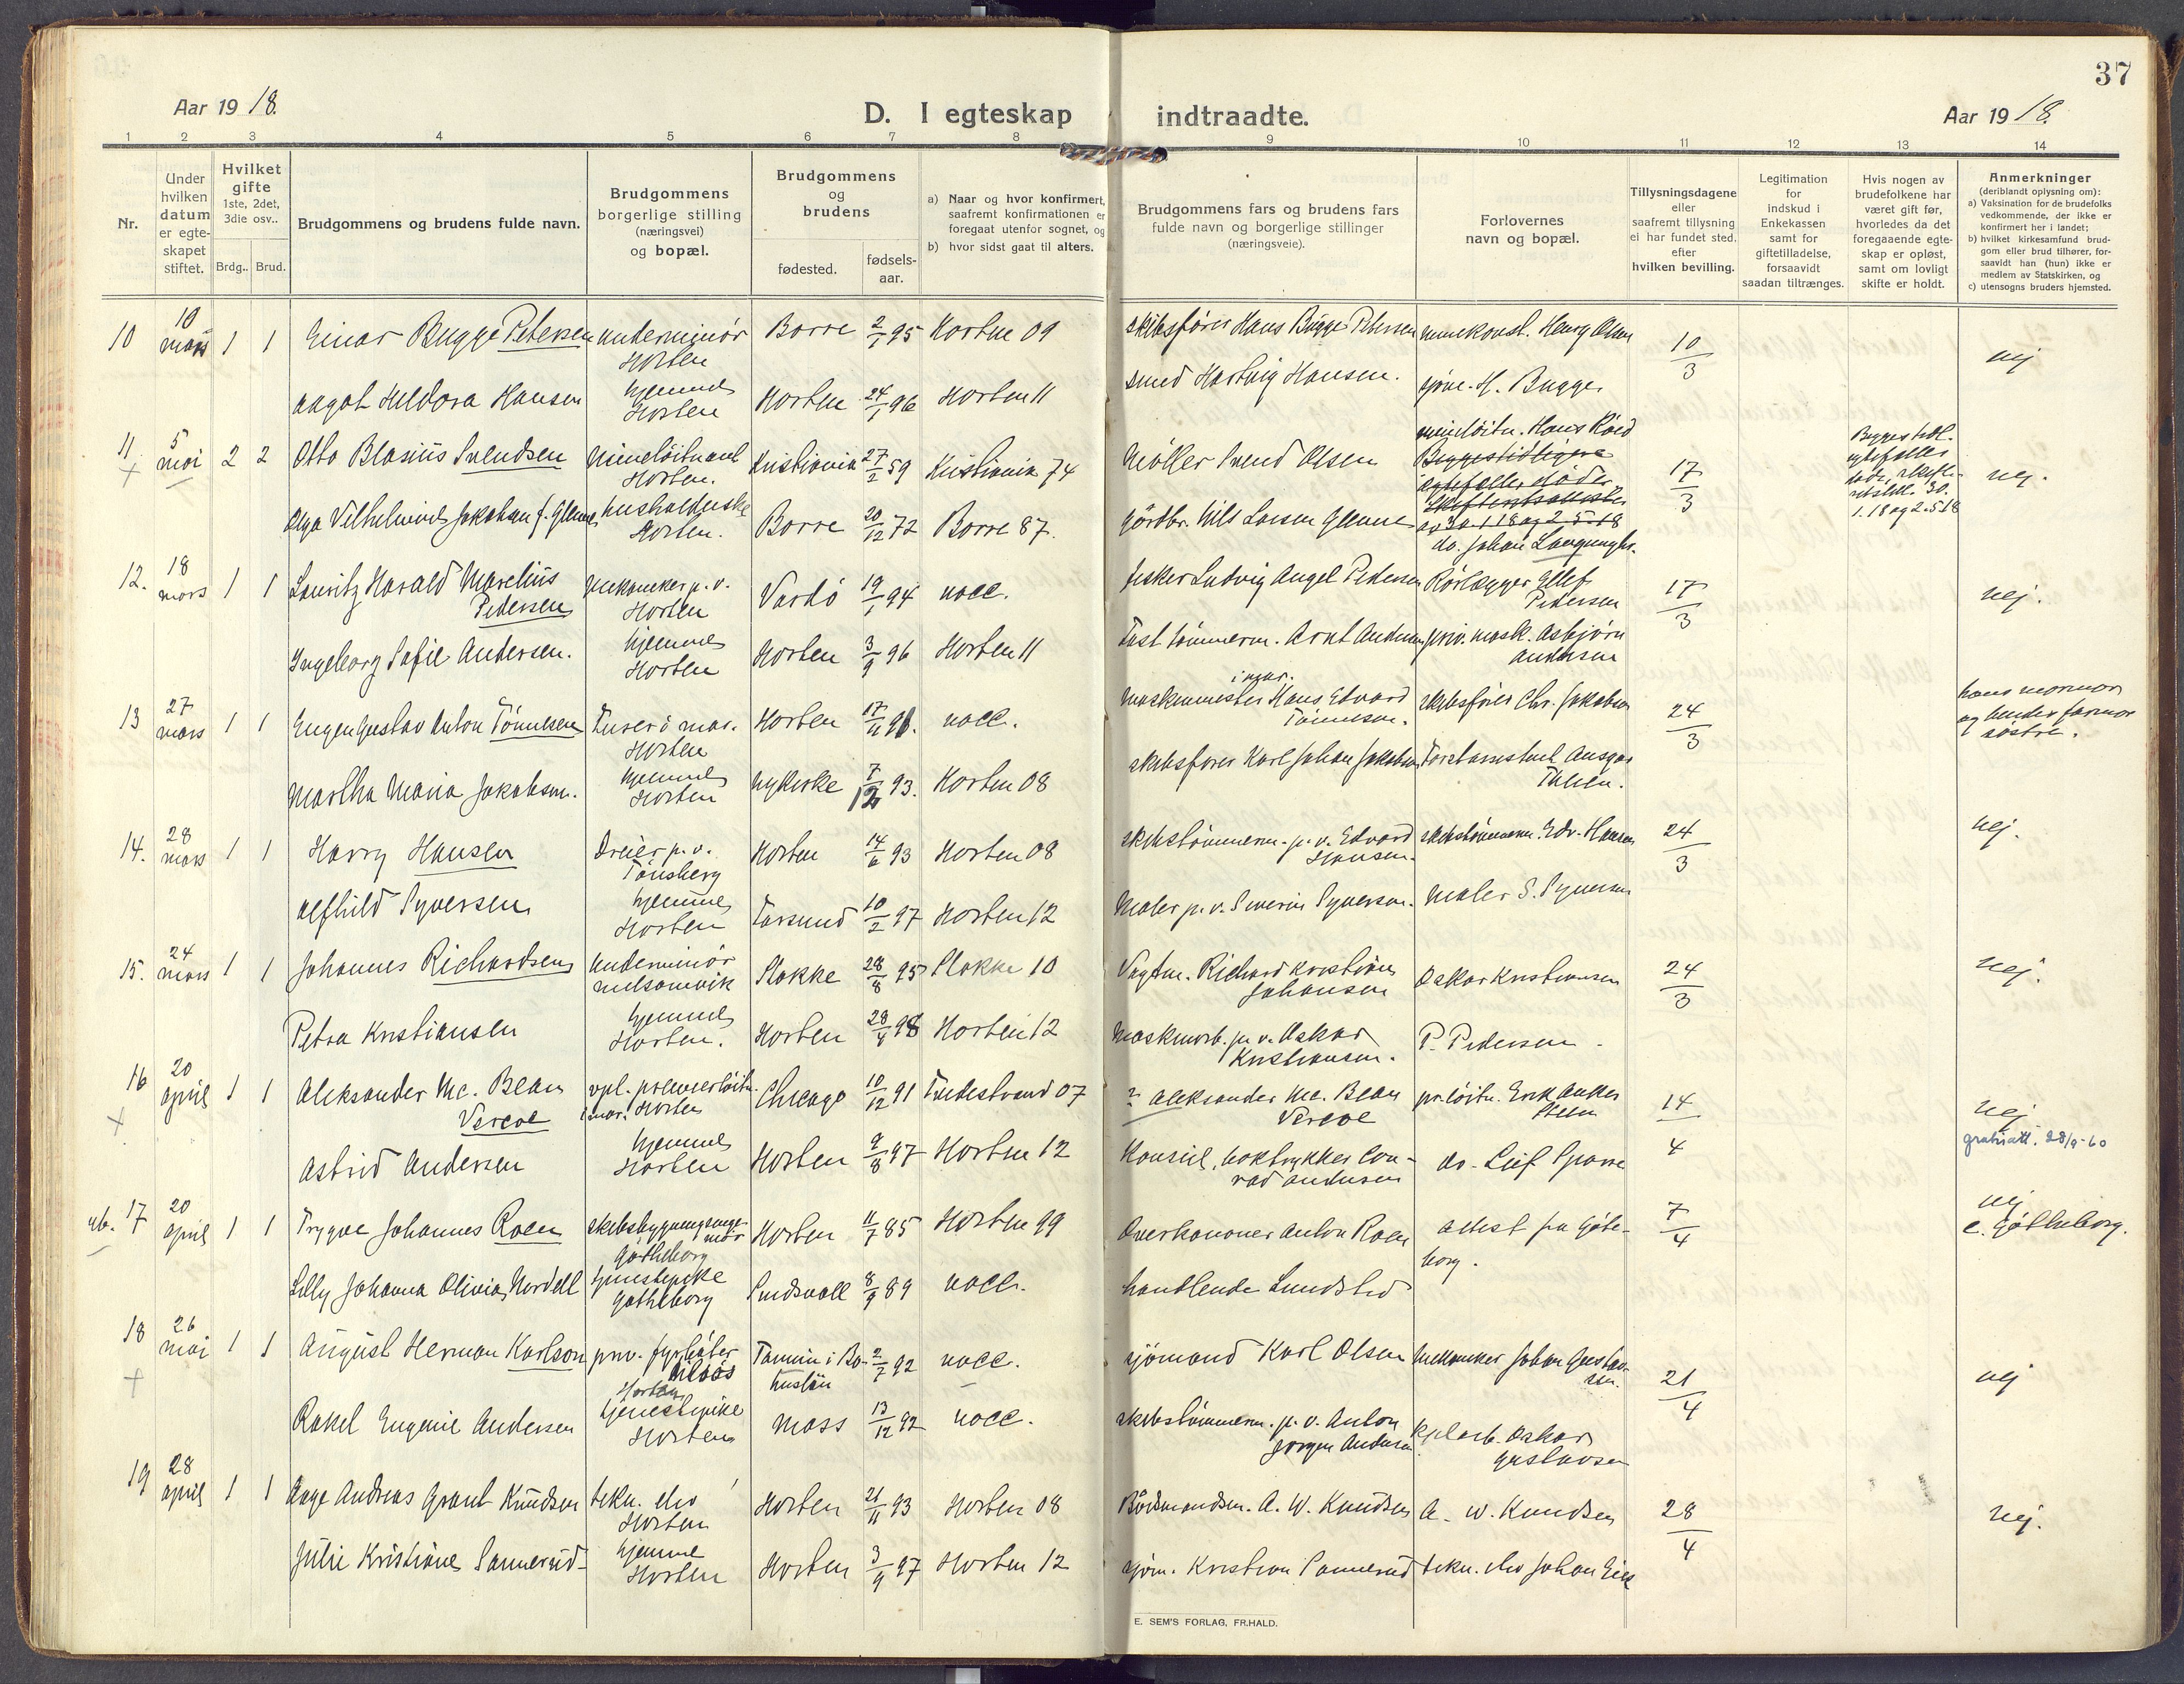 37
Aar 19 18.
D. I egteskap indtraadte.
Aar 19 18.
1 2 3 4 5 6 7 8 9 10 11 12 13 14
Nr.
Under
hvilken
datum
er egte-
skapet
stiftet.
Hvilket
gifte
1ste, 2det,
3die osv..
Brdg.. Brud.
Brudgommens og brudens fulde navn.
Brudgommens
borgerlige stilling
(næringsvei)
og bopæl.
Brudgommens
og
brudens
fødested.
fødsels-
aar.
a) Naar og hvor konfirmert,
saafremt konfirmationen er
foregaat utenfor sognet, og
b) hvor sidst gaat til alters.
Brudgommens fars og brudens fars
fulde navn og borgerlige stillinger
(næringsveie).
Forlovernes
navn og bopæl.
Tillysningsdagene
eller
saafremt tillysning
ei har fundet sted.
efter
hvilken bevilling.
Legitimation
for
indskud i
Enkekassen
samt for
giftetilladelse,
forsaavidt
saadan tiltrænges.
Hvis nogen av
brudefolkene har
været gift før,
hvorledes da det
foregaaende egte-
skap er opløst,
samt om lovligt
skifte er holdt.
Anmerkninger
(deriblandt oplysning om):
a) Vaksination for de brudefolks
vedkommende, der ikke er
konfirmert her i landet;
b) hvilket kirkesamfund brud-
gom eller brud tilhører, for-
saavidt han (hun) ikke er
medlem av Statskirken, og
c) utensogns bruders hjemsted.
10 10 mars 1 1 Einar Bugge Petersen underminör Horten Borre 2/1 95 Horten 09 skibsfører Hans Bugge Petersen minekonst. Henry Olsen 10/3 nej
Aagot Heldora Hansen hjemme Horten Horten 24/1 96 Horten 11 smed Hartvig Hansen. H. Bugge
11 5 mai 2 2 Otto Blasius Svendsen Mineløitnant Horten. Kristiania 27/2 59 Kristiania 74 Møller Svend Olsen mineløitn. Hans Röed 17/3 nej.
Olga Vilhelmine Jakobsen f. Glenne husholderske Horten. Borre 20/12 72 Borre 87. Gårdbr. Nils Larsen Glenne do. Johan
12. 18 mars 1 1 Lauritz Harald Marelius Pedersen Mekaniker p. v. Horten Vardö 19/1 94 vacc. fisker Ludvig Angel Pedersen Rörlægger Ellef Pedersen 17/3 nej.
Ingeborg Sofie Andersen. hjemme Horten Horten 3/9 96 Horten 11 Fast tömmerm. Arnt Andersen priv. mask. Asbjörn Andersen
13 27 mars 1 1 Eugen Gustav Anton Tönnesen Horten Horten 17/11 vacc. Maskinmester i mar. Hans Edvard Tönnesen. skibsfører Chr. Jakobsen 24/3 hans mormor og hendes farmor søstre.
Martha Maria Jakobsen. hjemme Horten Nykirke 7/12 93. Horten 08 skibsfører Karl Johan Jakobsen Forstassistent Ansgar
14. 28 mars 1 1 Harry Hansen Dreier p. v. Tönsberg Horten 14/6 93 Horten 08 skibstömmerm. p. v. Edvard Hansen. skibstömmerm. Edv. Hansen 24/3 nej.
Alfhild Syversen hjemme Horten Farsund 10/2 97 Horten 12 Maler p. v. Severin Syversen. Maler S. Syversen
15. 24 mars 1 1 Johannes Richardsen underminör Melsomvik Stokke 28/8 95 Stokke 10 Vagtm. Richard Kristian Johansen Oskar Kristiansen 24/3 nej.
Petra Kristiansen hjemme Horten. Horten 28/4 98 Horten 12 Maskinarb. p. v. Oskar Kristiansen. P. Pedersen
16 20 april 1 1 Aleksander Mc. Bean Vercoe vpl. premierløitn. i mar. Horten Chicago 10/12 91 Tvedestrand 07 ? Aleksander Mc. Bean Vercoe pr. løitn. Erik Anker Steen 14/4 nej
gratisatt. 28/9-60
Astrid Andersen hjemme Horten Horten 9/8 97 Horten 12 Konsul, boktrykker Conrad Andersen do. Leif Sparre
ub. 17 20 april 1 1 Trygve Johannes Roen skibsbygningsingeniör Gøtheborg Horten 11/7 85 Horten 99 Overkanoner Anton Roen attest fra Gøteborg. 7/4 nej c. Gøtheborg.
Lilly Johanna Olivia Nordell tjenestepike Gøtheborg Sundsvall 8/9 89 vacc. handlende Lundsted
18 26 mai 1 1 August Herman Karlson priv. fyrbøter Horten Tanum i Bohuslän 2/7 92 vacc. sjömand Karl Olsen Mekaniker Johan Gustavsen. 21/4 nej
Rakel Eugenie Andersen tjenestepike Horten Moss 13/12 92 vacc. skibstömmerm. p. v. Anton Jørgen Andersen Oskar Gustavsen
19 28 april 1 1 Aage Andreas Grant Knudsen tekn. elev Horten Horten 21/11 93 Horten 08 Bådsmandsm. A. W. Knudsen A. W. Knudsen 28/4 nej.
Julie Kristiane Sannerud hjemme Horten Horten 3/9 97 Horten 12 sjöm. Kristian Sannerud tekn. elev Johan
E. SEM'S FORLAG, FR.HALD.